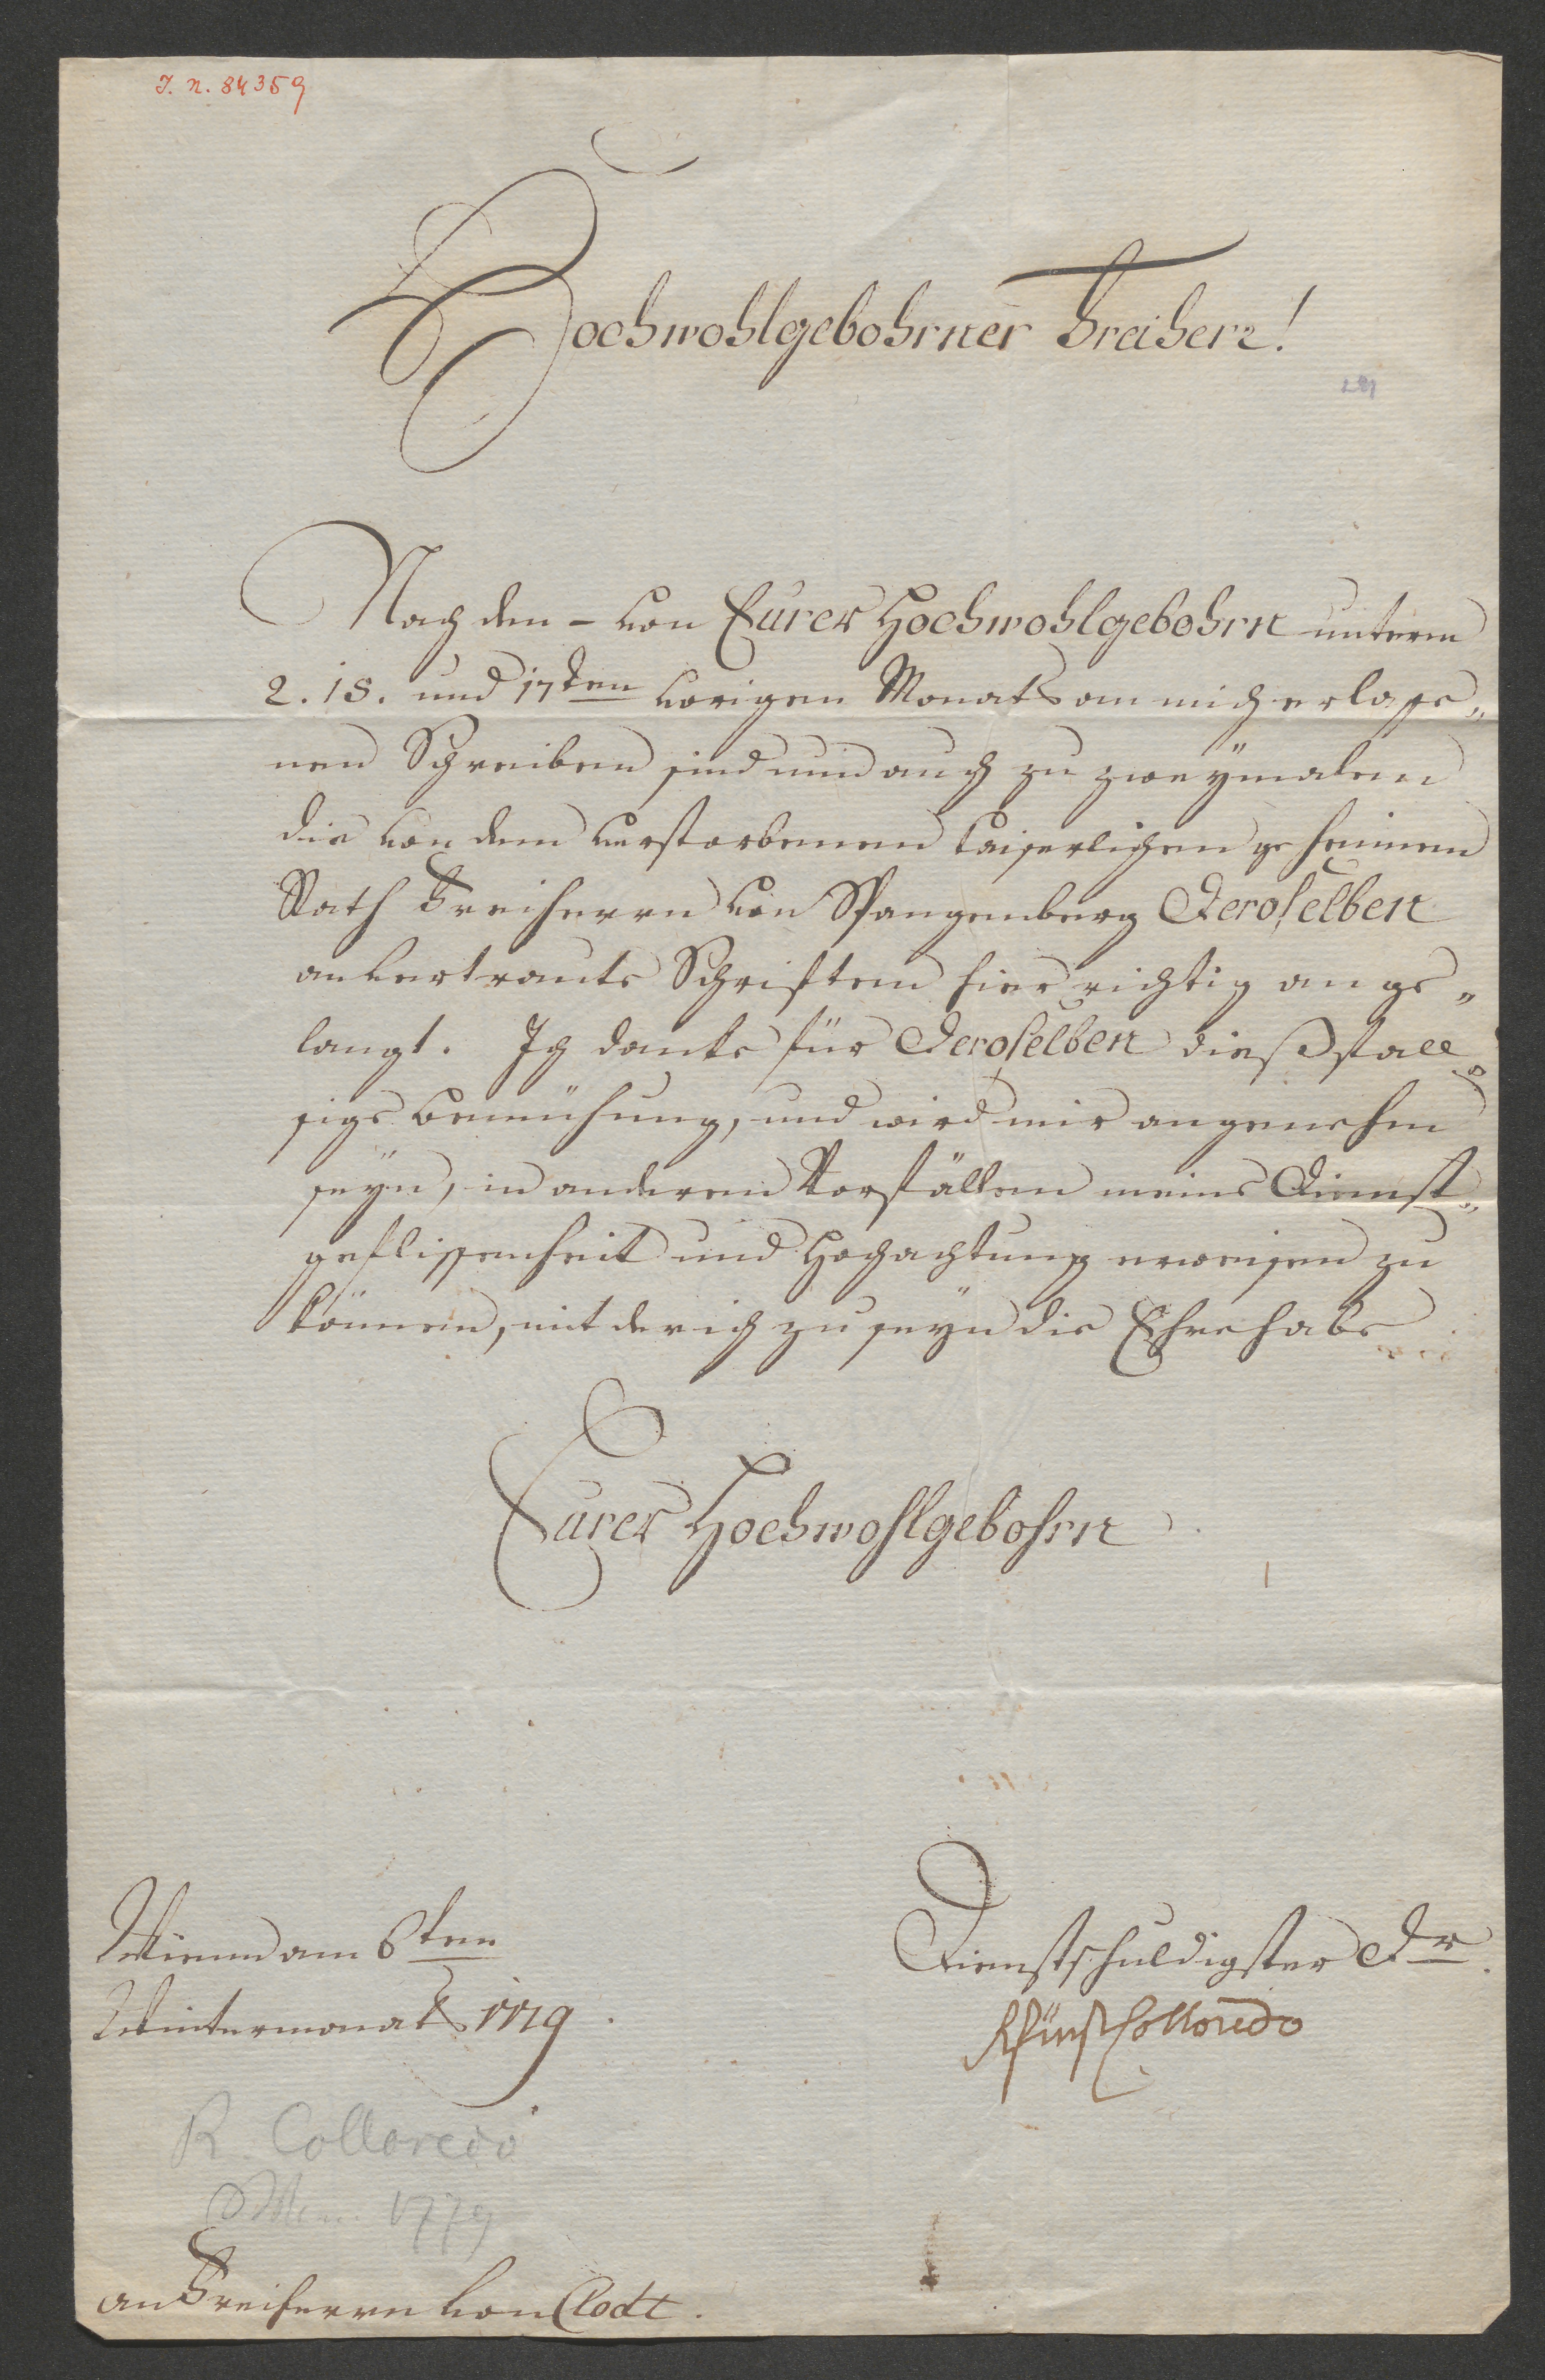 I. N. 84359
Hochwohlgebohrner Freiherr!
Nach den – von Eurer Hochwohlgebohrn unterm
2. 18. und 17ten vorigen Monats an mich erlaße„
nen Schreiben sind nun auch zu zweÿmalen
die von dem verstorbenen kaiserlichen geheimen
Rath Freiherrn von Spangenberg Deroselben
anvertraute Schriften hier richtig ange„
langt. Ich danke für Deroselben dießfall„
sige Bemühung, und wird mir angenehm
seÿn, in anderen Vorfällen meine Dienst„
geflissenheit und Hochachtung erweisen zu
können, mit der ich zu seÿn die Ehre habe
Eurer Hochwohlgebohrn
Wienn am 6ten
Wintermonats 1779.
Dienstschuldigster Dr.
RFürst Colloredo
R. Colloredo
Wien 1779
an Freiherrn von Clodt.